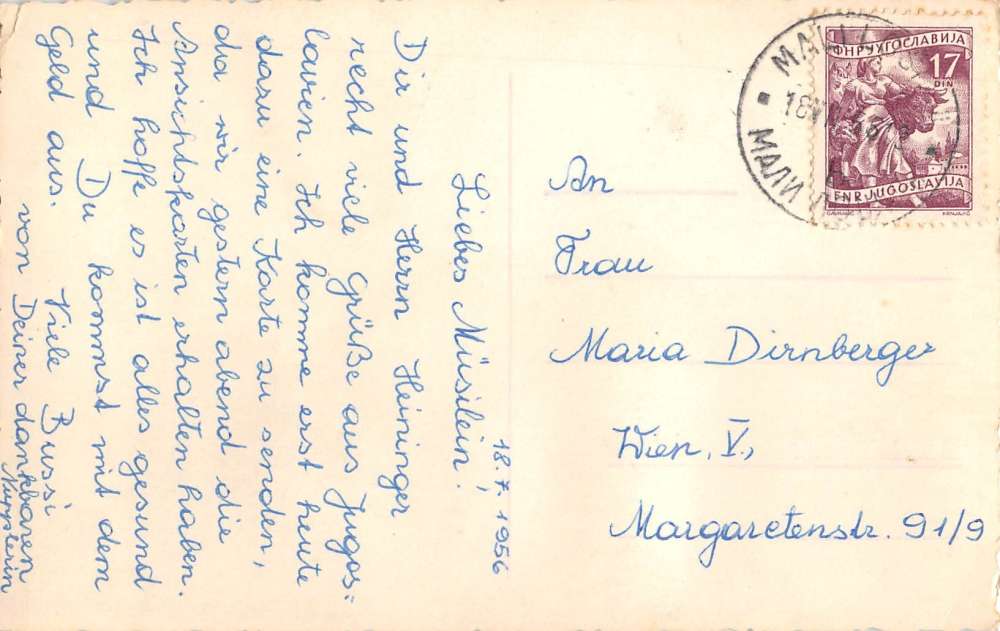 18.7.1956
Liebes Müsilein!
Dir und Herrn Heininger
recht viele Grüße aus Jugos=
lavien. Ich komme erst heute
dazu eine Karte zu senden,
da wir gestern abend die
Ansichtskarten erhalten haben.
Ich hoffe es ist alles gesund
und Du kommst mit dem
Geld aus. Viele Bussi
von Deiner dankbaren
An
Frau
Maria Dirnberger
Wien, V.,
Margaretenstr. 91/9
ФНР ЈУГОСЛАВИЈА
17
DIN
FNR JUGOSLAVIJA
МАЛИ